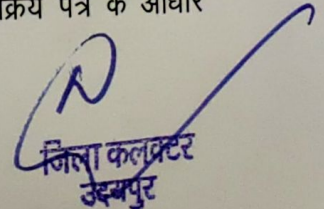 क्रय पत्र के आधार
जिला कलक्टर
उदयपुर